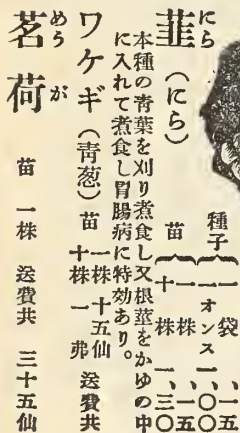 韮（にら）
にら
種子 一袋 、一五
一オンス 一、〇〇
苗 一株 、一五
十株 一、三〇
本種の青葉を刈り煮食し又根莖をかゆの中
に入れて煮食し胃腸病に特効あり。
ワケギ（青葱）苗 一株十五仙 送費共
十株一弗
茗荷 苗 一株 送費共 三十五仙
めうが